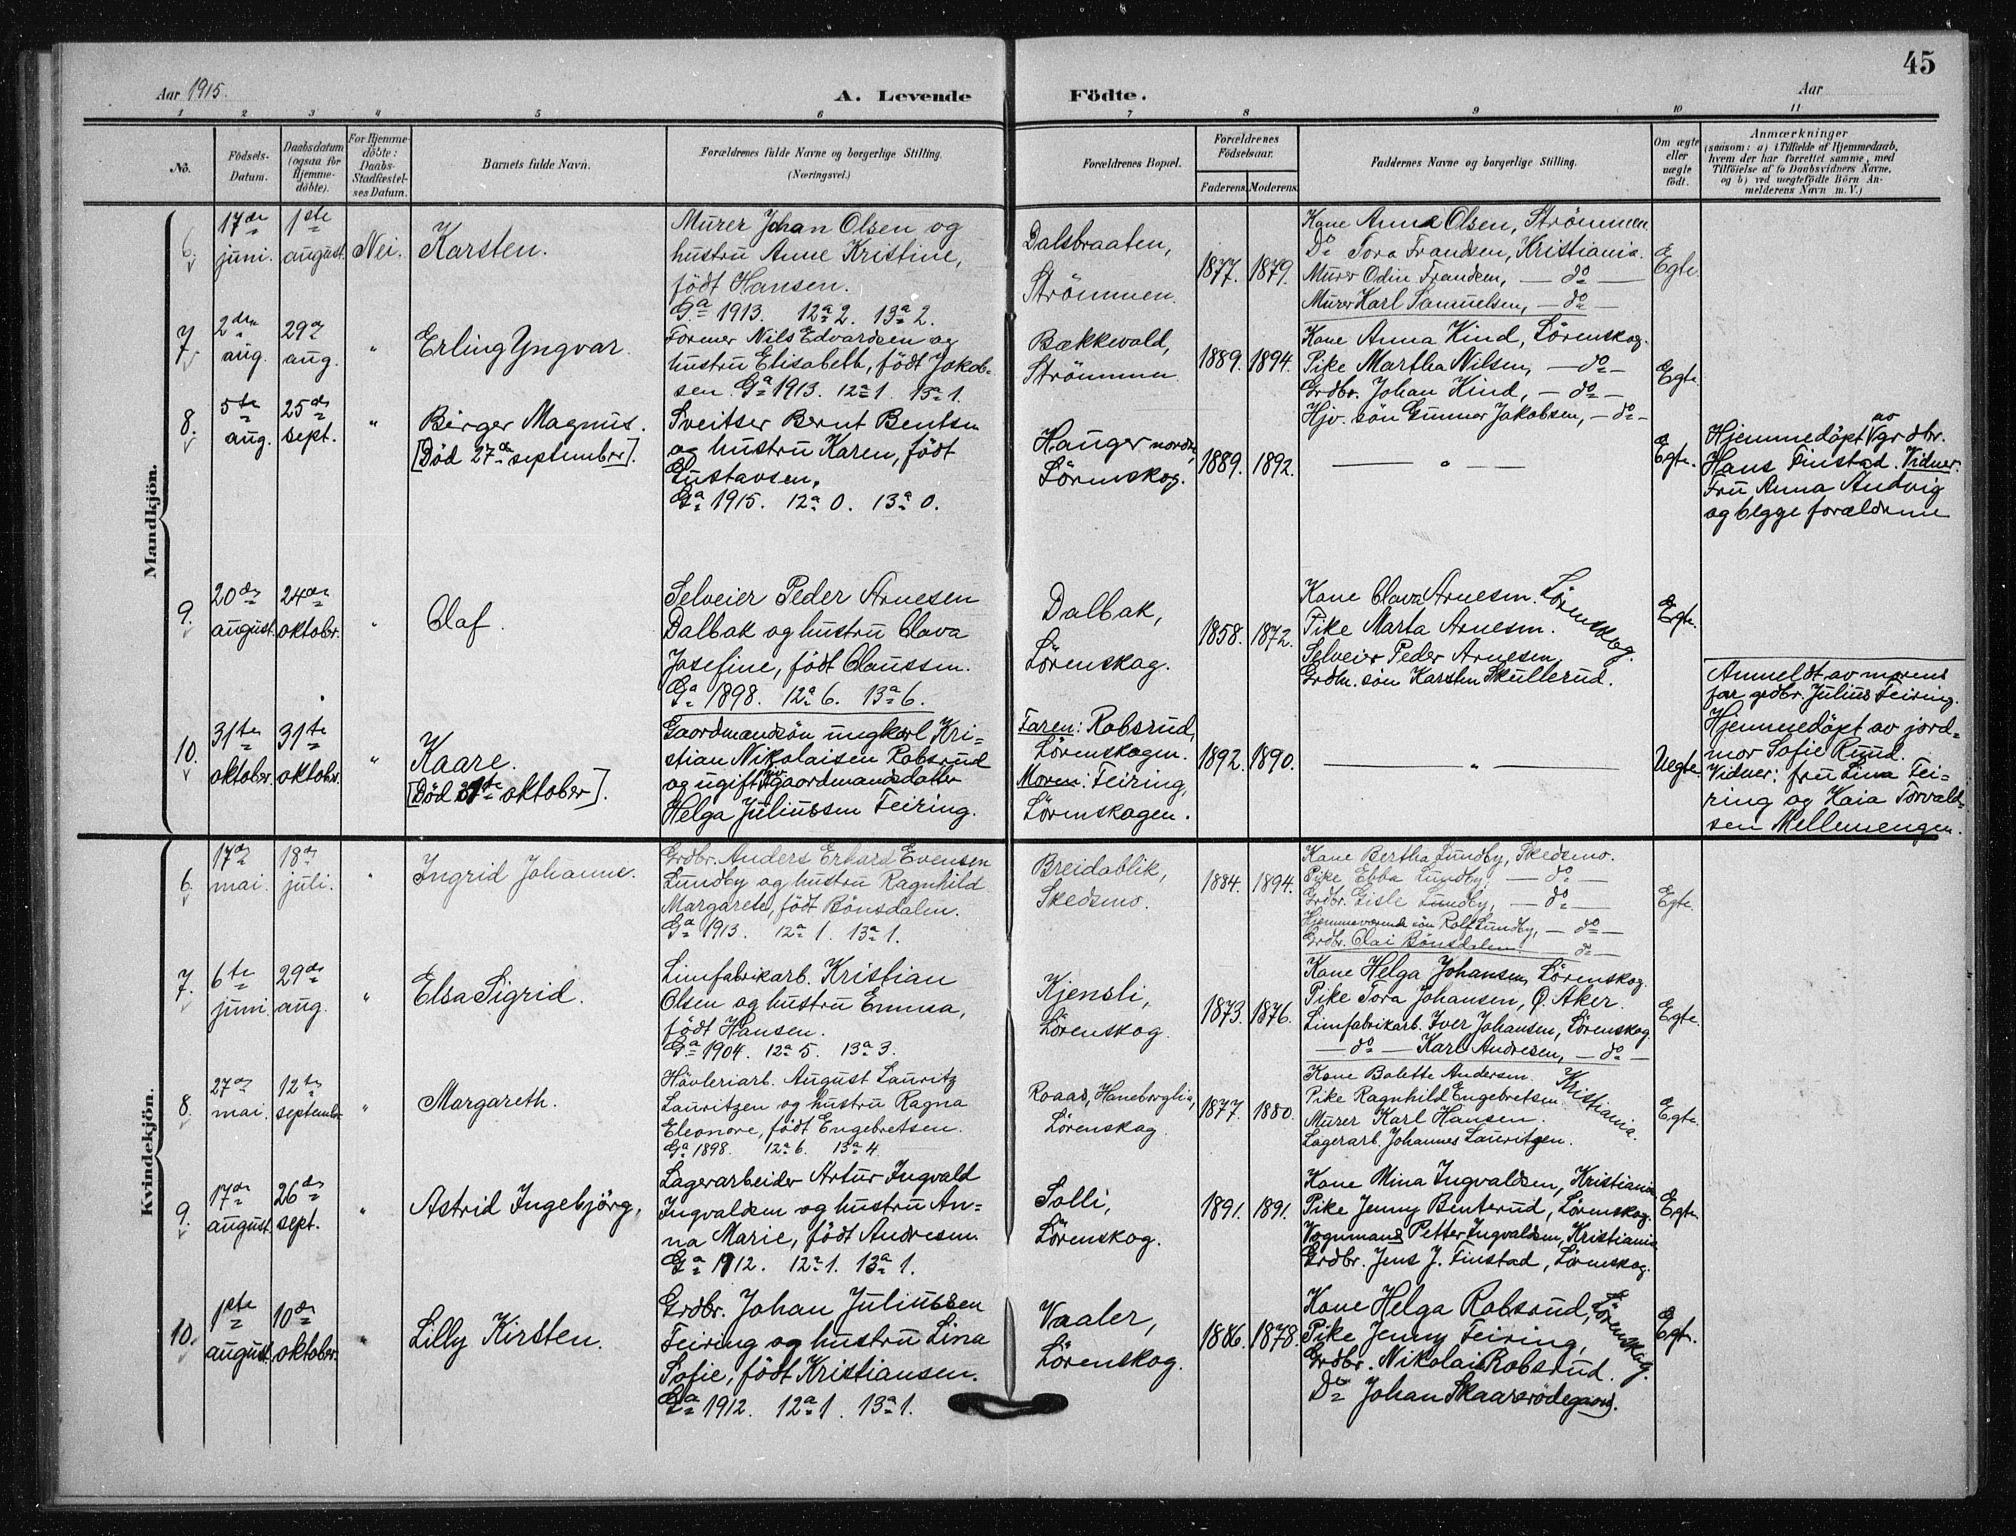 45
Aar 1915.
A. Levende Födte.
Aar
1 2 3 4 5 6 7 8 9 10 11
No.
Födsels-Datum.
Daabsdatum (ogsaa for Hjemme-döbte).
For Hjemme-döbte: Daabs-Stadfæstel-ses Datum.
Barnets fulde Navn.
Forældrenes fulde Navne og borgerlige Stilling.
(Næringsvei.)
Forældrenes Bopæl.
Forældrenes Födselsaar.
Faderens. Moderens.
Faddernes Navne og borgerlige Stilling.
Om ægte eller uægte födt.
Anmærkninger
(saasom: a) i Tilfælde af Hjemmedaab, hvem der har forrettet samme, med Tilföielse af to Daabsvidners Navne, og b) ved uægtefödte Börn An-melderens Navn m. V.)
Mandkjön.
6.
17de juni.
1ste august.
Nei.
Karsten.
Murer Johan Olsen og
hustru Anne Kristine,
födt Hansen.
Ga 1913. 12a 2. 13a 2.
Dalsbraaten,
Strömmen.
1877. 1879.
Kone Anna Olsen, Strömmen.
Do Tora Frandsen, Kristiania.
Murer Odin Frandsen, — do —
Murer Karl Samuelsen, — do —
Egte.
7.
2den aug.
29de aug.
"
Erling Yngvar.
Former Nils Edvardsen og
hustru Elisabeth, födt Jakob-
sen. Ga 1913. 12a 1. 13a 1.
Bækkevold,
Strömmen.
1889. 1894.
Kone Anna Kind, Lörenskog.
Pike Martha Nilsen, — do —
Grdbr. Johan Kind, — do —
Hjv. sön Gunnar Jakobsen, — do —
Egte.
8.
5te aug.
25de sept.
"
Birger Magnus.
[Död 27de september].
Sveitser Bernt Bentsen
og hustru Karen, födt
Gustavsen.
Ga 1915. 12a 0. 13a 0.
Hauger nordre,
Lörenskog.
1889. 1892.
— " — —
Egte.
Hjemmedöpt av grdbr.
Hans Finstad. Vidner:
Fru Anna Andvig
og begge forældrene
9.
20de august.
24de oktober.
"
Olaf.
Selveier Peder Arnesen
Dalbak og hustru Olava
Josefine, födt Olaussen.
Ga 1898. 12a 6. 13a 6.
Dalbak,
Lörenskog.
1858. 1872.
Kone Olava Arnesen. Lörenskog.
Pike Marta Arnesen.
Selveier Peder Arnesen
Grdbr. sön Karsten Skullerud.
Egte.
10.
31te oktober.
31te oktobr.
"
Kaare.
[Död 31te oktober].
Gaardmandssön ungkarl Kri-
stian Nikolaisen Robsrud
og ugift gaardmandsdatter
Helga Juliussen Feiring.
Faren: Robsrud,
Lörenskogen.
Moren: Feiring,
Lörenskogen.
1892. 1890.
— " —
Uegte.
Anmeldt av morens
far grdbr. Julius Feiring.
Hjemmedöpt av jord-
mor Sofie Ruud.
Vidner: fru Lina Fei-
ring og Kaia Torvald-
sen Mellemengen.
Kvindekjön.
6.
17de mai.
18de juli.
"
Ingrid Johanne.
Grdbr. Anders Erhard Evensen
Lundby og hustru Ragnhild
Margarete, födt Bönsdalen.
Ga 1913. 12a 1. 13a 1.
Breidablik,
Skedsmo.
1884. 1894.
Kone Bertha Lundby, Skedsmo.
Pike Ebba Lundby, — do —
Grdbr. Gisle Lundby, — do —
Hjemmeværende sön Rolf Lundby, — do —
Grdbr. Olai Bönsdalen — do —
Egte.
7.
6te juni.
29de aug.
"
Elsa Sigrid.
Limfabrikarb. Kristian
Olsen og hustru Emma,
födt Hansen.
Ga 1904. 12a 5. 13a 3.
Kjensli,
Lörenskog.
1873. 1876.
Kone Helga Johansen, Lörenskog.
Pike Tora Johansen, Ö. Aker.
Limfabrikarb. Iver Johansen, Lörenskog.
— do — Karl Andresen, — do —
Egte.
8.
27de mai.
12te september
"
Margareth.
Hövleriarb. August Lauritz
Lauritzen og hustru Ragna
Eleonore, födt Engebretsen.
Ga 1898. 12a 6. 13a 4.
Roaas, Haneborglia,
Lörenskog.
1877. 1880.
Kone Bolette Andersen. Kristiania.
Pike Ragnhild Engebretsen
Murer Karl Hansen.
Lagerarb. Johannes Lauritzen.
Egte.
9.
17de august.
26de sept.
"
Astrid Ingebjörg,
Lagerarbeider Artur Ingvald
Ingvaldsen og hustru An-
na Marie, födt Andresen.
Ga 1912. 12a 1. 13a 1.
Solli,
Lörenskog.
1891. 1891.
Kone Mina Ingvaldsen, Kristiania
Pike Jenny Benterud, Lörenskog.
Vognmand Petter Ingvaldsen, Kristiania
Grdbr. Jens J. Finstad, Lörenskog.
Egte.
10.
1ste august.
10de oktober.
"
Lilly Kirsten.
Grdbr. Johan Juliussen
Feiring og hustru Lina
Sofie, födt Kristiansen.
Ga 1912. 12a 1. 13a 1.
Vaaler,
Lörenskog.
1886. 1878.
Kone Helga Robsrud, Lörenskog.
Pike Jenny Feiring,
Grdbr. Nikolai Robsrud.
Do Johan Skaarsrödegaard.
Egte.